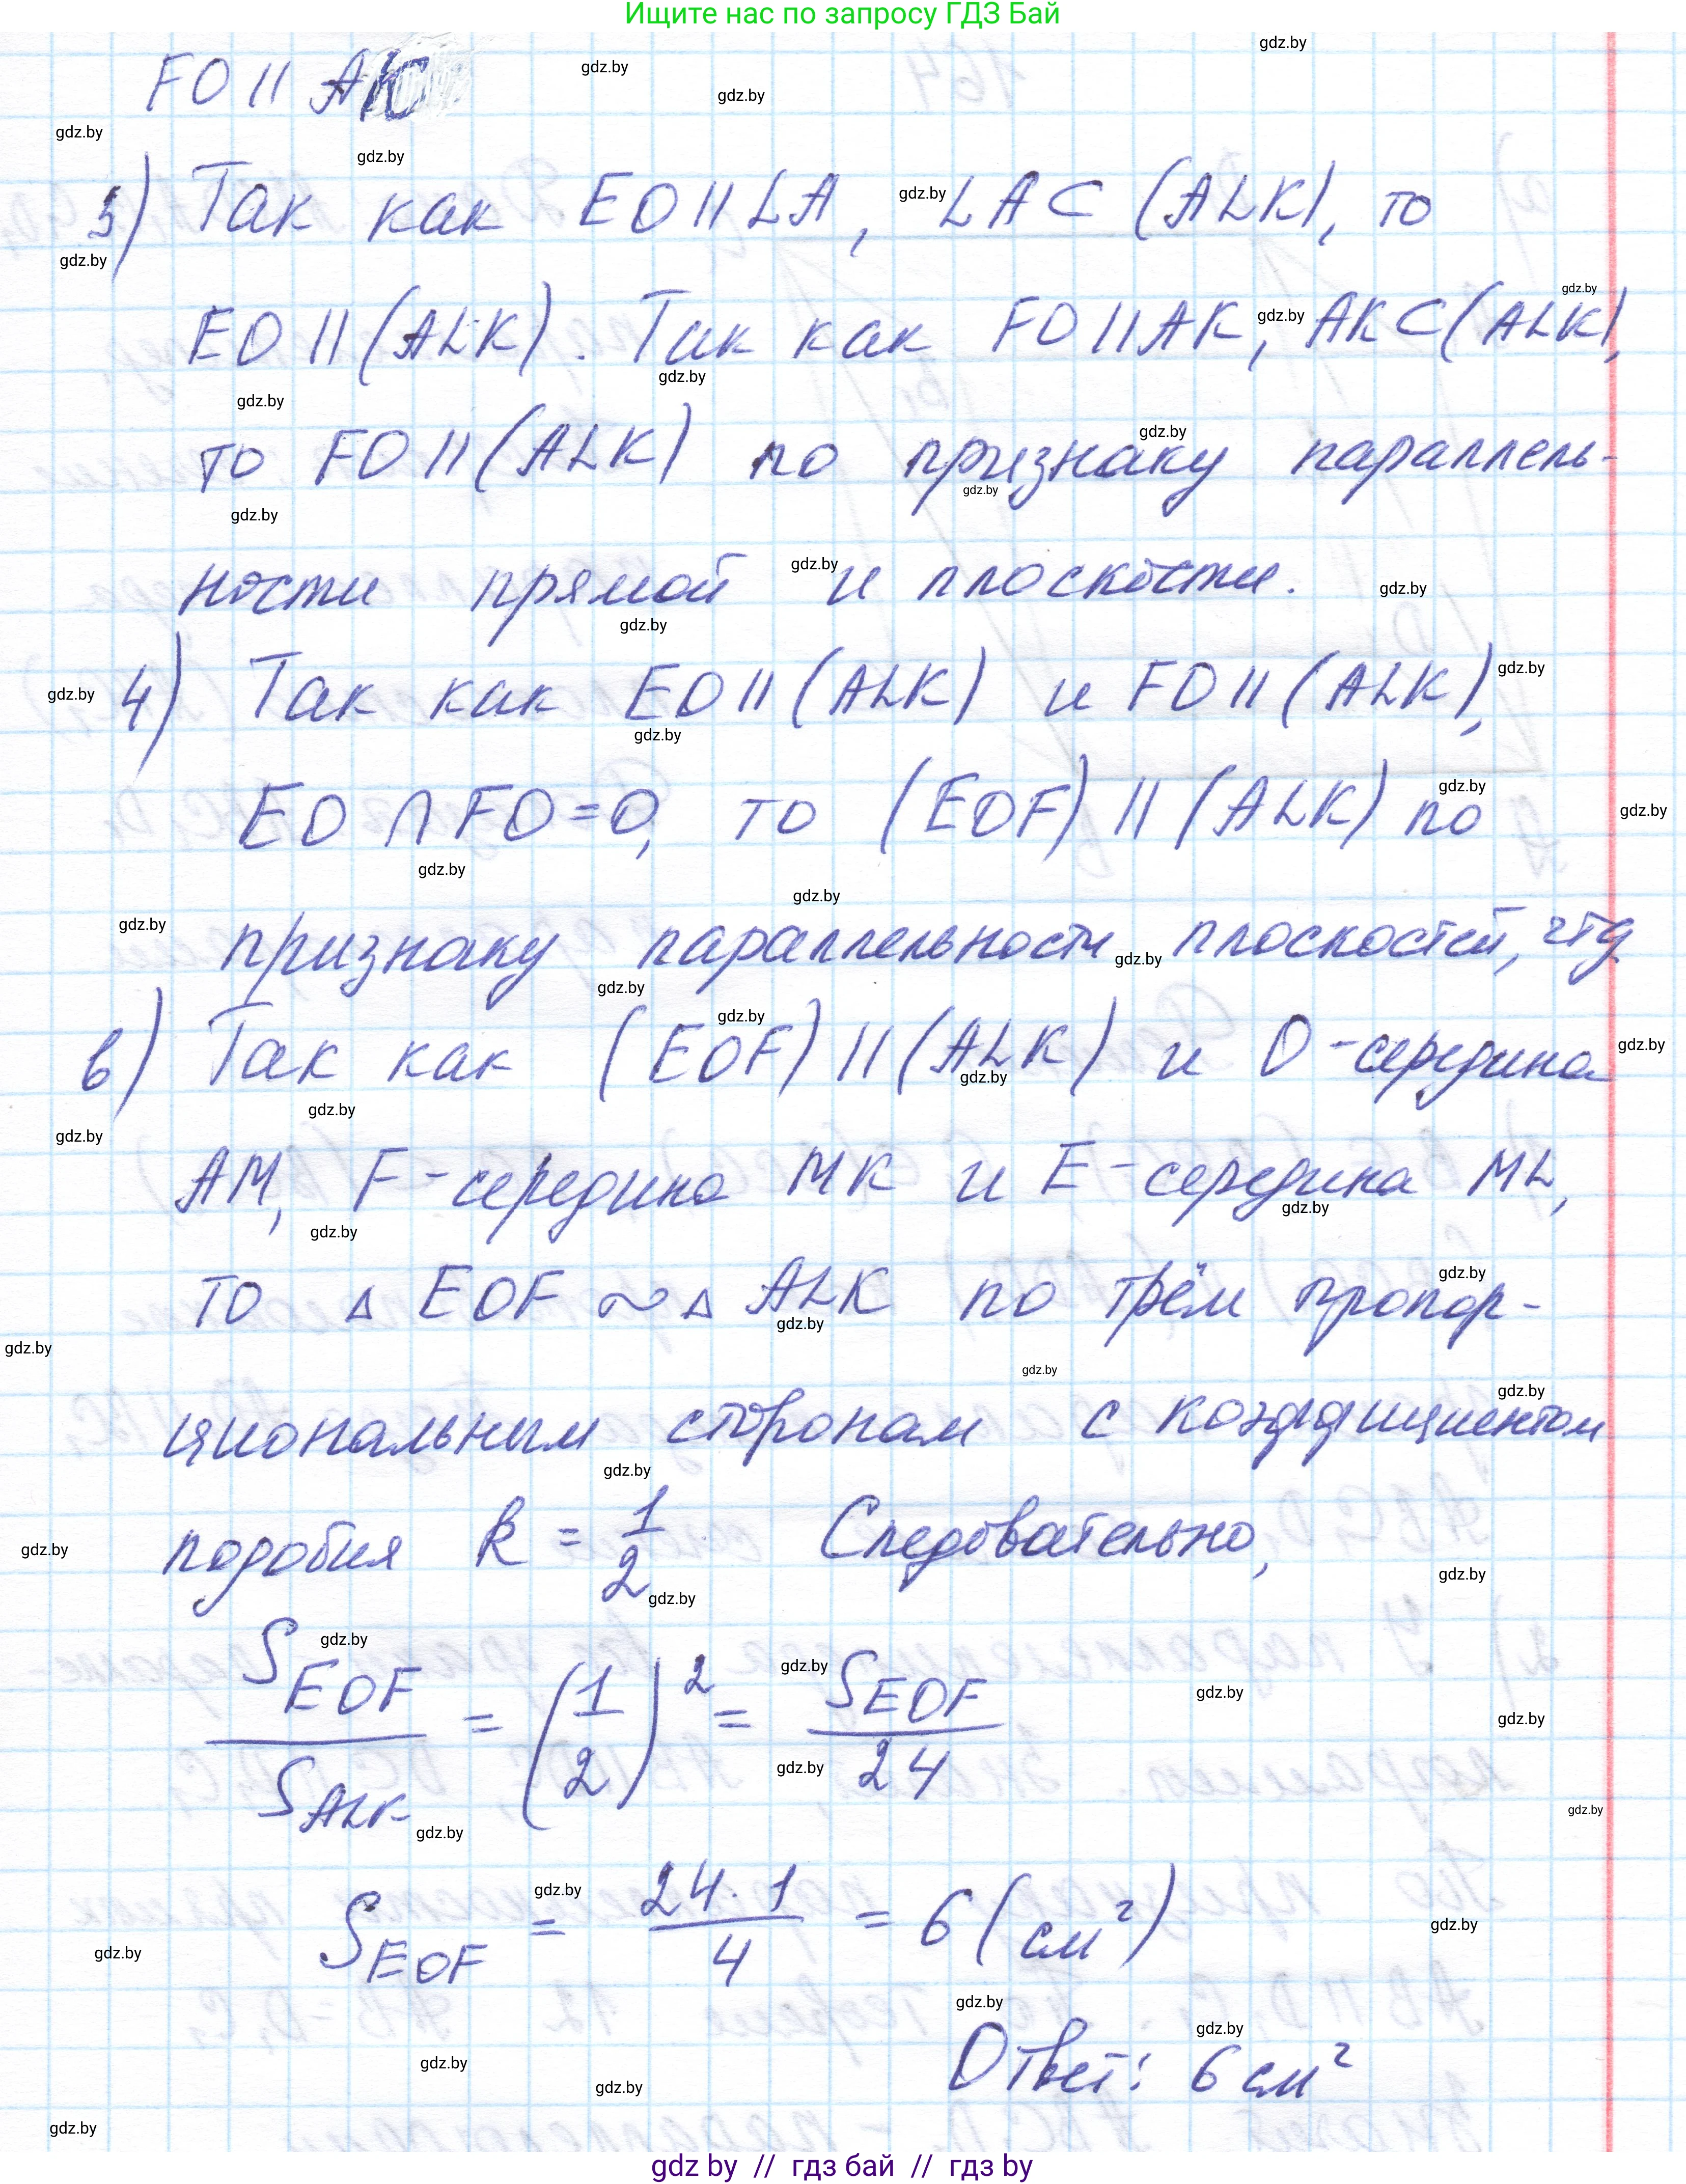 Ищите нас по запросу ГДЗ Бай
FO || AK
3) Так как EO || LA, LA ⊂ (ALK), то
EO || (ALK). Так как FO || AK, AK ⊂ (ALK),
то FO || (ALK) по признаку параллель-
ности прямой и плоскости.
4) Так как EO || (ALK) и FO || (ALK),
EO ∩ FO = O, то (EOF) || (ALK) по
признаку параллельности плоскостей, чтд
в) Так как (EOF) || (ALK) и O - середина
AM, F - середина MK и E - середина ML,
то △ EOF ~ △ ALK по трём пропор-
циональным сторонам с коэффициентом
подобия k = 1/2 Следовательно,
S_EOF / S_ALK = (1/2)² = S_EOF / 24
S_EOF = 24 · 1 / 4 = 6 (см²)
Ответ: 6 см²
gdz by // гдз бай // гдз by